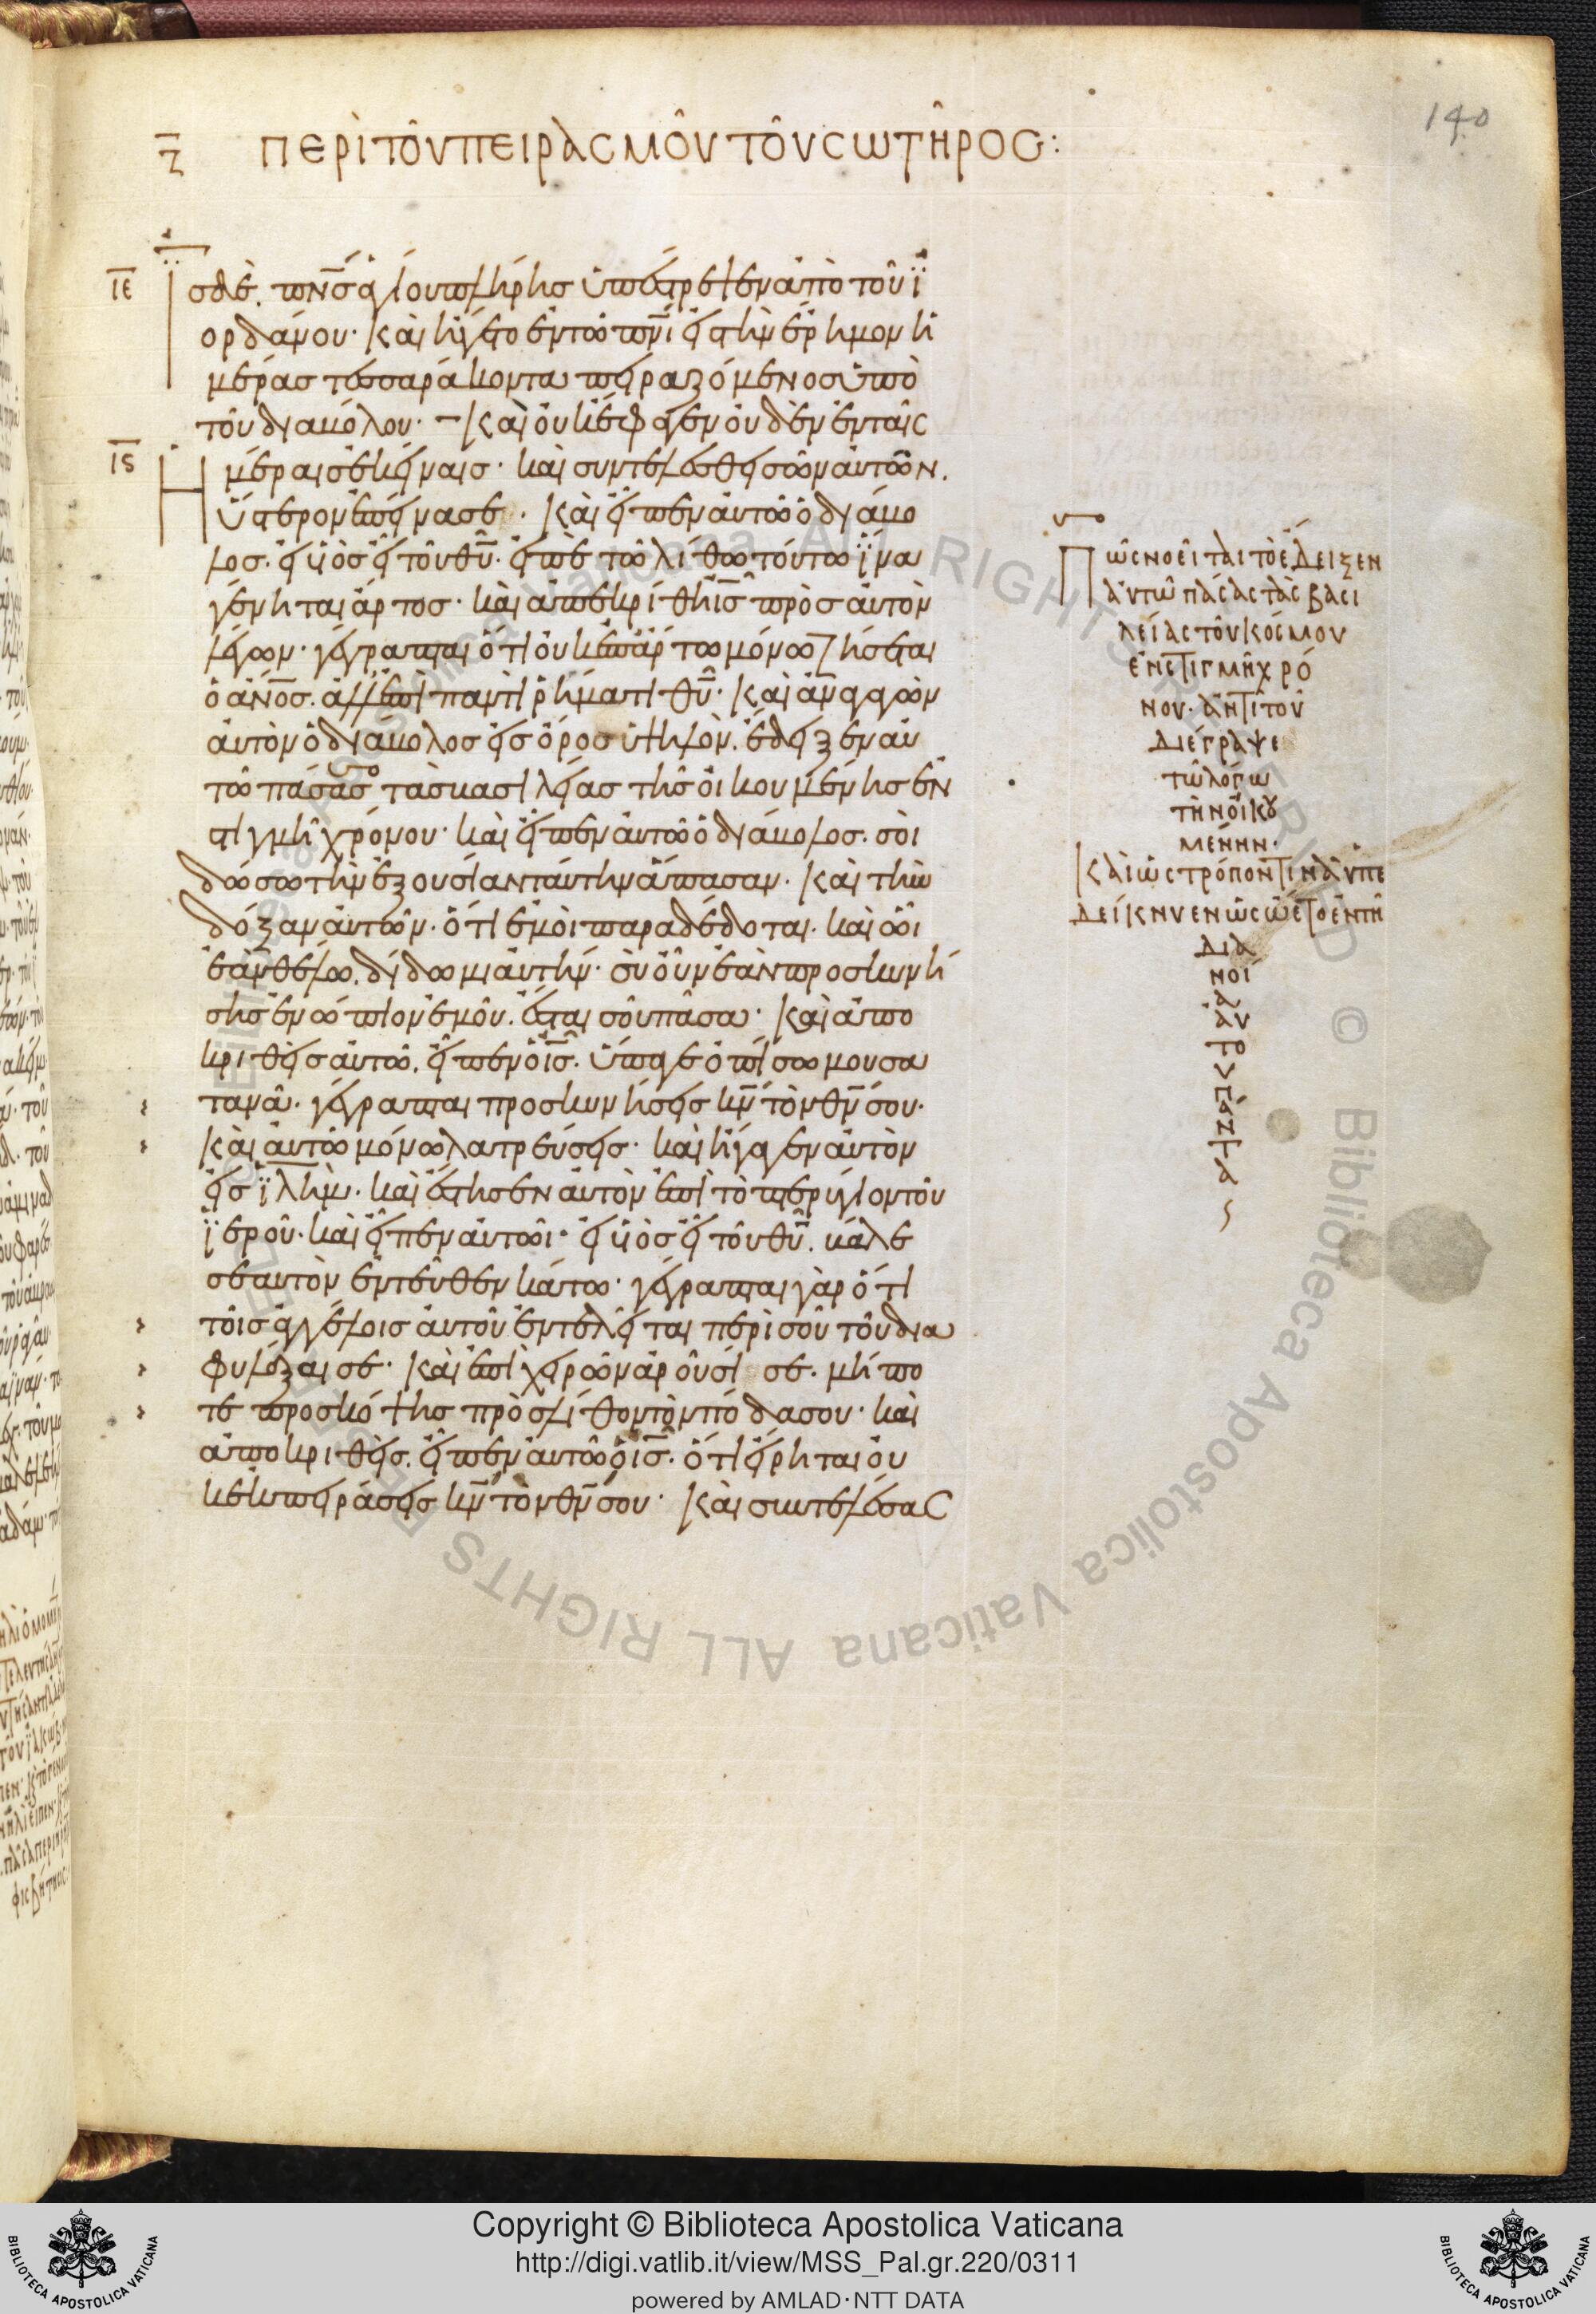 140
ζ ΠΕΡῚ ΤΟΥ͂ ΠΕΙΡΑΣΜΟΥ͂ ΤΟΥ͂ ΣΩΤΗ͂ΡΟΣ:
ιε Ἰς δὲ. πνς ἁγίου πλήρης ὑπέστρεψεν ἀπὸ τοῦ ϊ
ορδάνου· καὶ ἤγετο ἐν τῶ πνι εἰς τὴν ἔρημον ἡ
μέρας τεσσαράκοντα πειραζόμενος ὑπὸ
τοῦ διαβόλου· καὶ οὐκ ἔφαγεν οὐδὲν ἐν ταῖς
ις Ἡμέραις ἐκείναις· καὶ συντελεσθεισῶν αὐτῶν.
ὕστερον ἐπείνασε· καὶ εἶπεν αὐτῶ ὁ διάβο
λος. εἰ υἱὸς εἶ τοῦ θυ. εἰπὲ τῶ λίθω τούτω ἵνα
γένηται ἄρτος· καὶ ἀπεκρίθη ις πρὸς αὐτὸν
λέγων· γέγραπται ὅτι οὐκ ἐπ' ἄρτω μόνω ζήσεται
ὁ ανος. ἀλλ' ἐπὶ παντὶ ῥήματι θυ· καὶ ἀναγαγὼν
αὐτὸν ὁ διάβολος εἰς ὄρος ὑψηλὸν. ἔδειξεν αὐ
τῶ πάσας τὰς βασιλείας τῆς οἰκουμένης ἐν
στιγμῆ χρόνου· καὶ εἶπεν αὐτῶ ὁ διάβολος. σοὶ
δώσω τὴν ἐξουσίαν ταύτην ἅπασαν. καὶ τὴν
δόξαν αὐτῶν· ὅτι ἐμοὶ παραδέδοται. καὶ ὧι
ἐὰν θέλω. δίδωμι αὐτήν· σὺ οὖν ἐὰν προσκυνή
σης ἐνώπιον ἐμοῦ. ἔσται σοῦ πᾶσα· καὶ ἀπο
κριθεὶς αὐτῶ. εἶπεν ὁ ις. ὕπαγε ὀπίσω μου σα
τανᾶ. γέγραπται προσκυνήσεις κν τὸν θν σου.
καὶ αὐτῶ μόνω λατρεύσεις· καὶ ἤγαγεν αὐτὸν
εἰς ϊλημ. καὶ ἔστησεν αὐτὸν ἐπὶ τὸ πτερύγιον τοῦ
ϊεροῦ. καὶ εἶπεν αὐτῶι· εἰ υἱὸς εἶ τοῦ θυ. βάλε
σεαυτὸν ἐντεῦθεν κάτω· γέγραπται γὰρ ὅτι
τοῖς ἀγγέλοις αὐτοῦ ἐντελεῖται περὶ σοῦ τοῦ δια
φυλάξαι σε· καὶ ἐπὶ χειρῶν ἀροῦσί σε. μή πο
τε προσκόψης πρὸς λίθον τὸν πόδα σου· καὶ
ἀποκριθεὶς. εἶπεν αὐτῶ ὁ ις. ὅτι εἴρηται οὐ
κ ἐκπειράσεις κν τὸν θν σου· καὶ συντελέσας
Πῶς νοεῖται τὸ ἔδειξεν
αὐτῶ πάσας τὰς βασι
λείας τοῦ κόσμου
ἐν στιγμῆ χρό
νου. ἀντὶ τοῦ
διέγραψε
τῶ λόγω
τὴν οἰκου
μένην·
καὶ ὡς τρόπον τινὰ ὑπε
δείκνυεν ὡς ὤετο ἐν τῆ
δια
νοί
α
αὐ
το
ῦ
π
ά
ν
τ
α
Copyright © Biblioteca Apostolica Vaticana
http://digi.vatlib.it/view/MSS_Pal.gr.220/0311
powered by AMLAD·NTT DATA
BIBLIOTECA APOSTOLICA VATICANA
BIBLIOTECA APOSTOLICA VATICANA
© Biblioteca Apostolica Vaticana ALL RIGHTS RESERVED